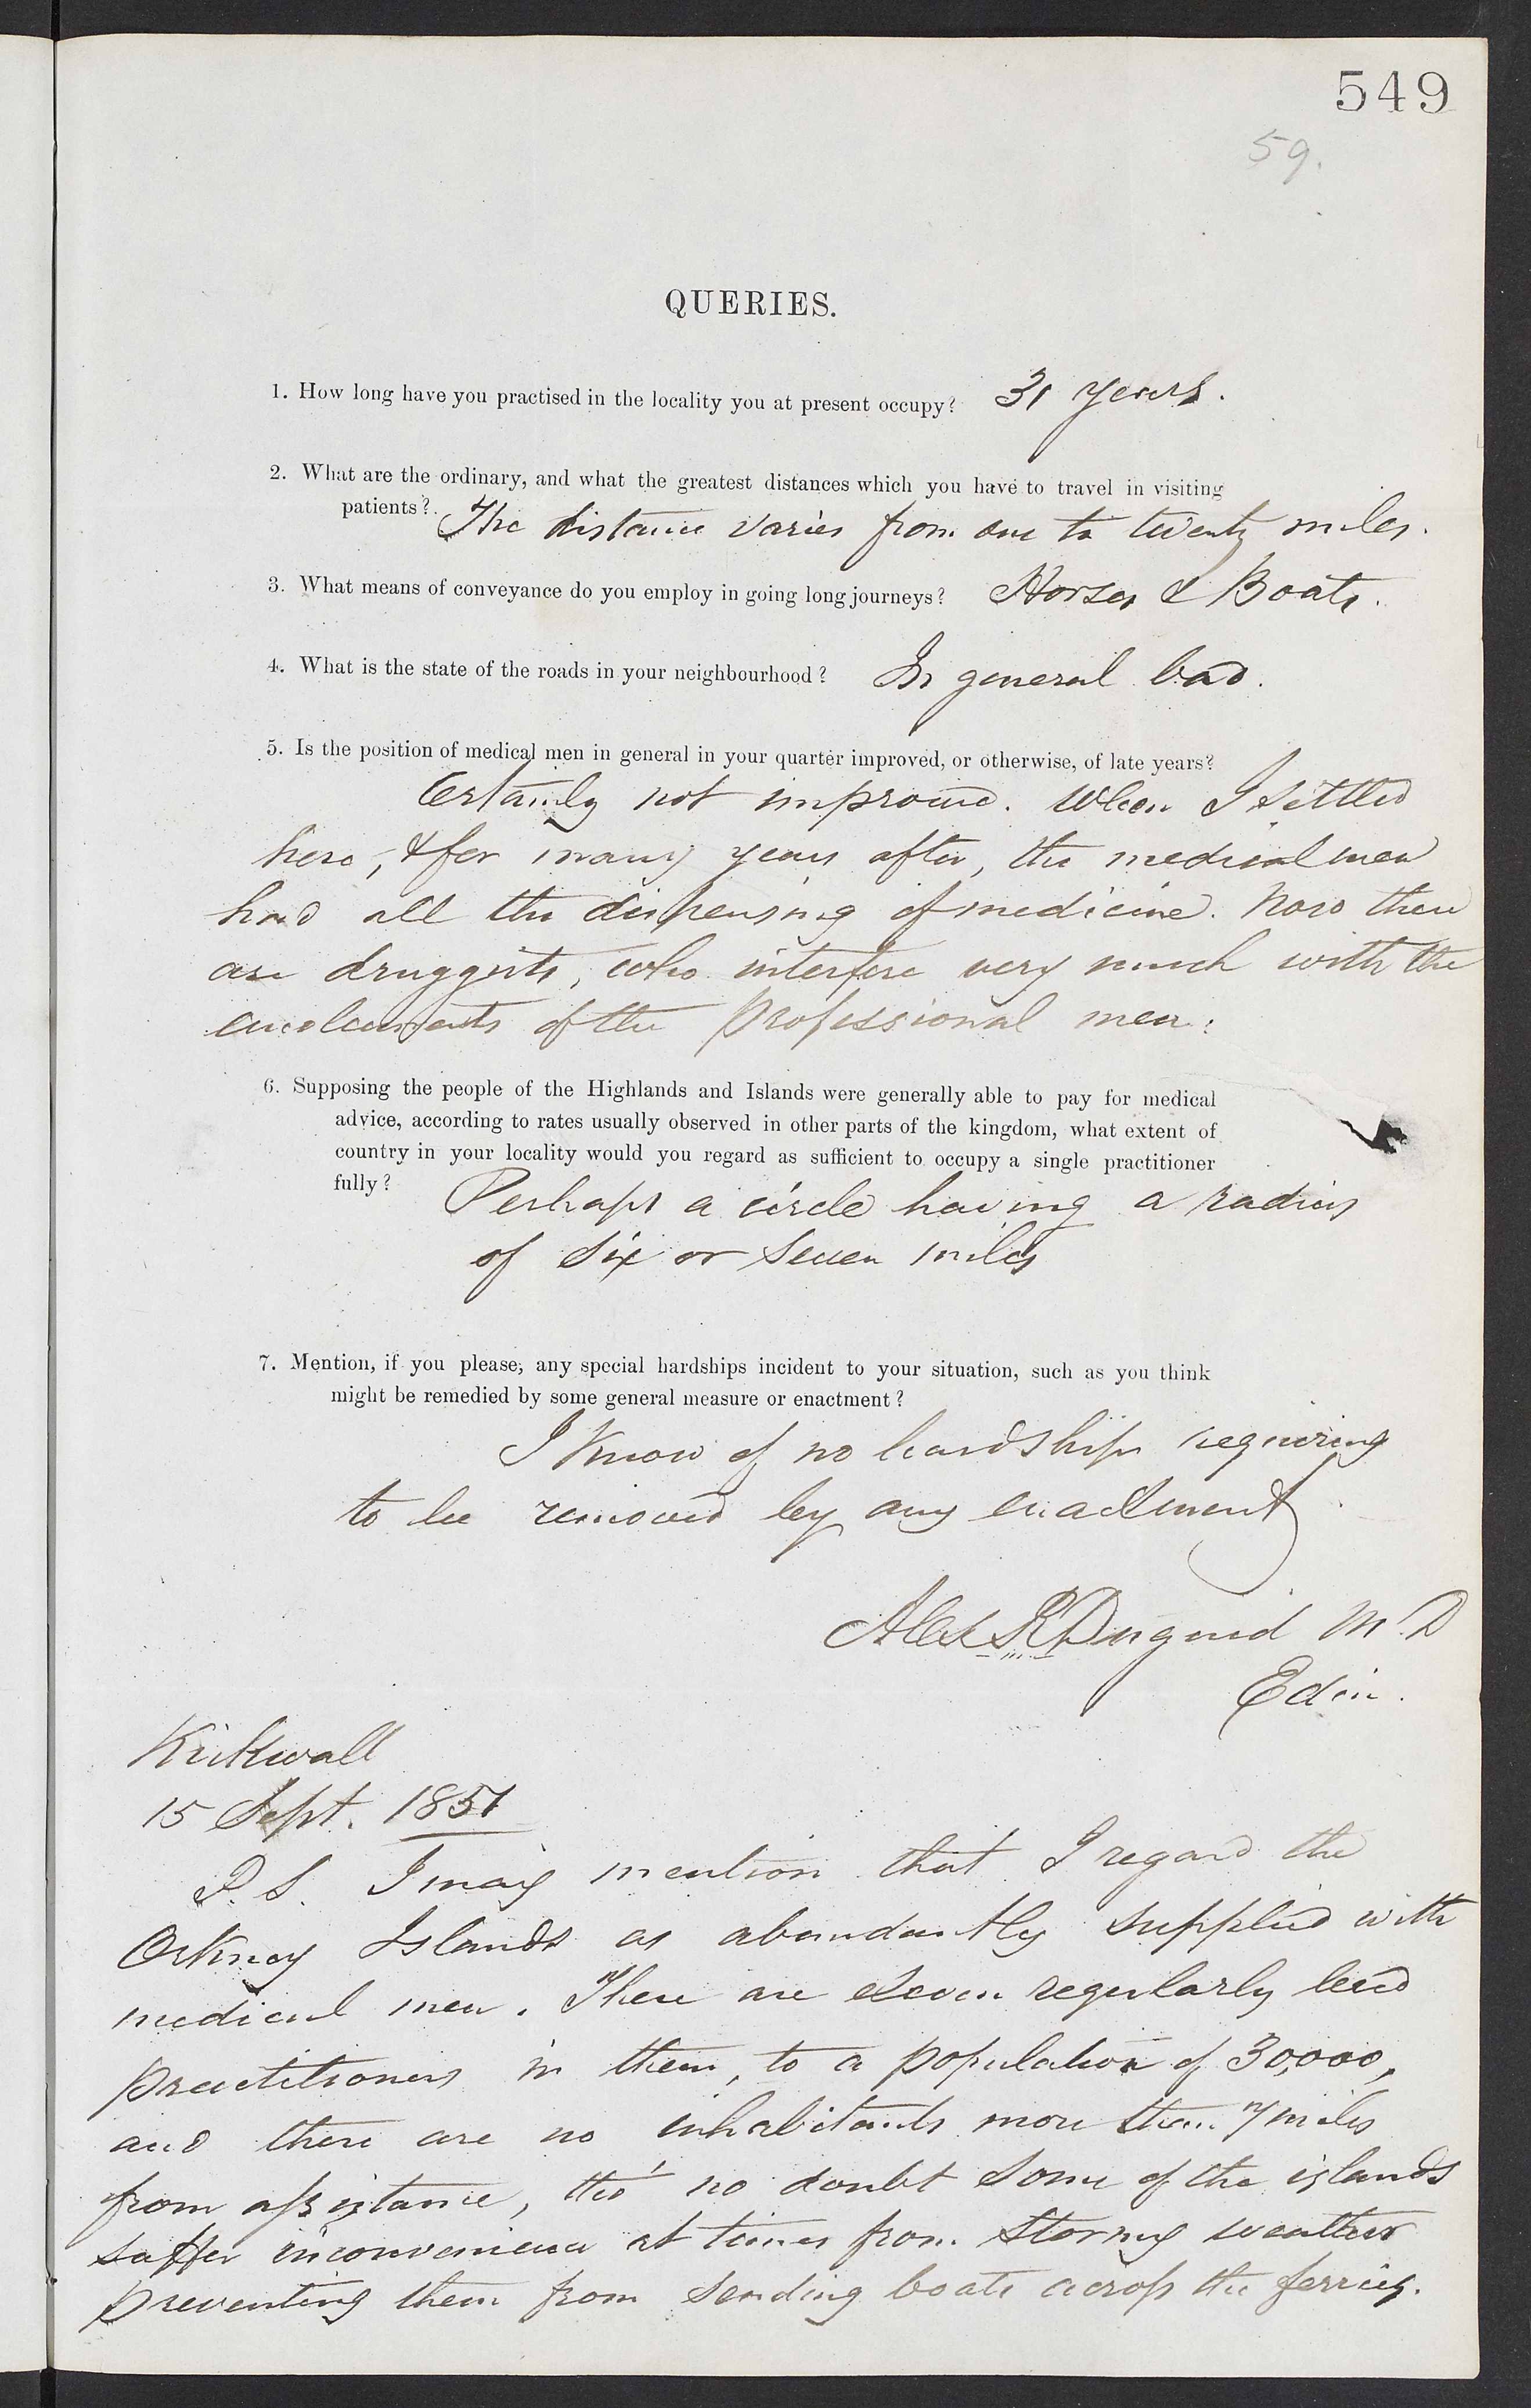 549
59.
QUERIES.
1. How long have you practised in the locality you at present occupy? 31 years.
2. What are the ordinary, and what the greatest distances which you have to travel in visiting
patients? The distance varies from one to twenty miles.
3. What means of conveyance do you employ in going long journeys? Horses & Boats.
4. What is the state of the roads in your neighbourhood? In general bad.
5. Is the position of medical men in general in your quarter improved, or otherwise, of late years?
Certainly not improved. When I settled
here, & for many years after, the medical men
had all the dispensing of medicine. Now there
are druggists, who interfere very much with the
emoluments of the professional men.
6. Supposing the people of the Highlands and Islands were generally able to pay for medical
advice, according to rates usually observed in other parts of the kingdom, what extent of
country in your locality would you regard as sufficient to occupy a single practitioner
fully? Perhaps a circle having a radius
of six or seven miles
7. Mention, if you please, any special hardships incident to your situation, such as you think
might be remedied by some general measure or enactment?
I know of no hardships requiring
to be removed by any enactment
Alex R Duguid M.D
Edin.
Kirkwall
15 Sept. 1851
P.S. I may mention that I regard the
Orkney Islands as abundantly supplied with
medical men. There are eleven regularly bred
practitioners in them, to a population of 30,000,
and there are no inhabitants more than 7 miles
from assistance, tho' no doubt some of the islands
suffer inconvenience at times from stormy weather
preventing them from sending boats across the ferries.